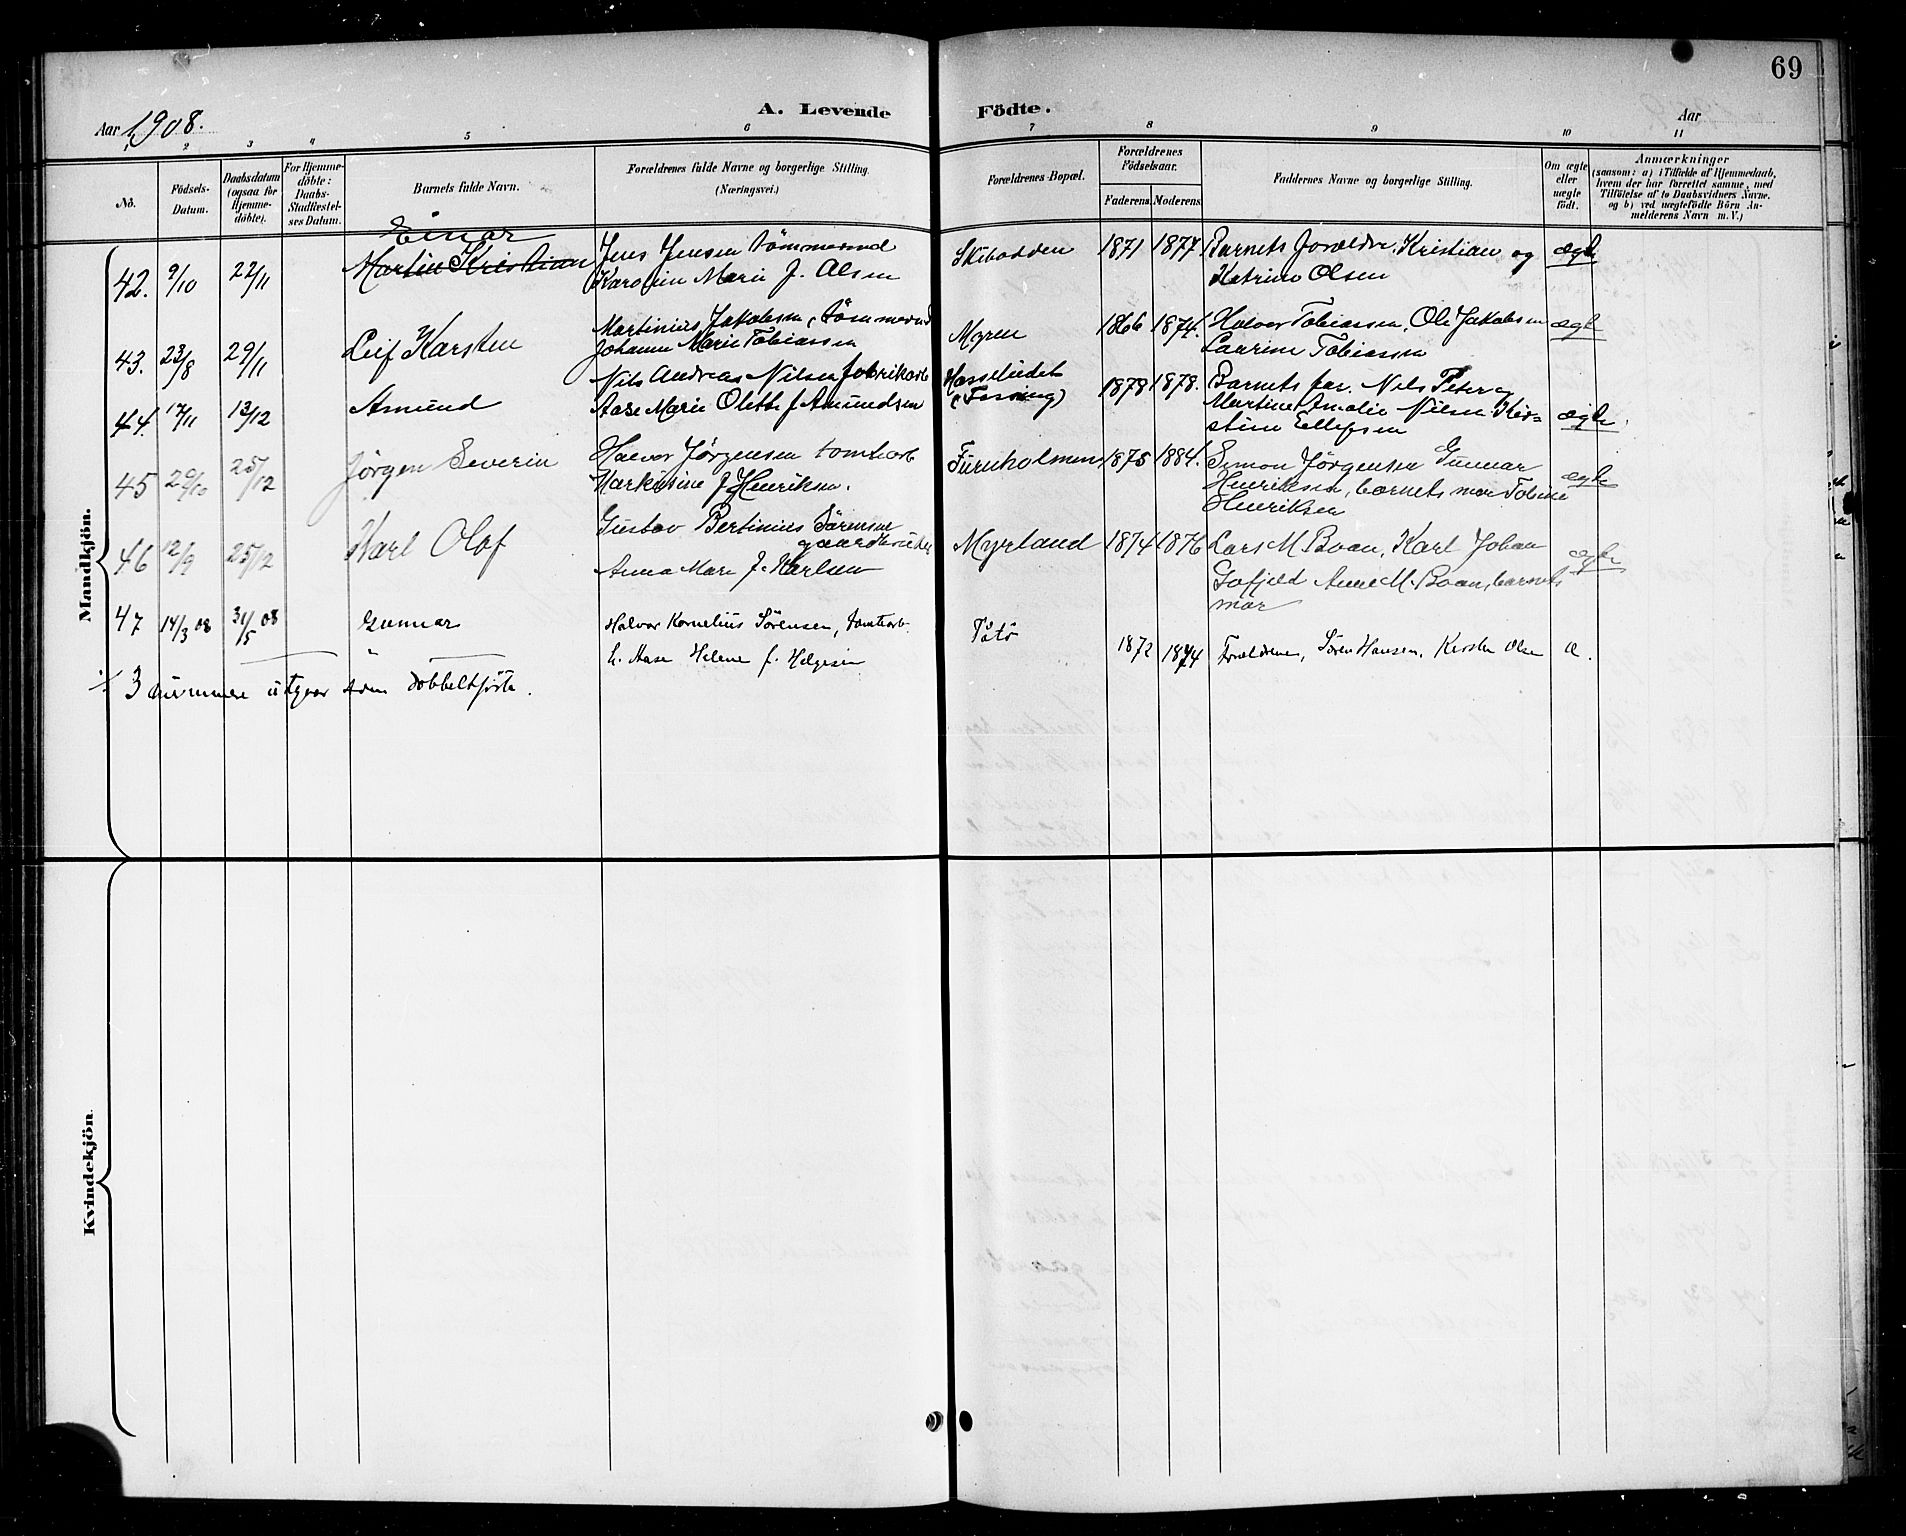 69
Aar 1908.
A. Levende Födte.
Aar
1 2 3 4 5 6 7 8 9 10 11
No.
Födsels-Datum.
Daabsdatum (ogsaa for Hjemme-döbte).
For Hjemme-döbte: Daabs-Stadfæstel-ses Datum.
Barnets fulde Navn.
Forældrenes fulde Navne og borgerlige Stilling. (Næringsvei.)
Forældrenes Bopæl.
Forældrenes Födselsaar.
Faderens Moderens
Faddernes Navne og borgerlige Stilling.
Om ægte eller uægte födt.
Anmærkninger
(saasom: a) i Tilfælde af Hjemmedaab, hvem der har forrettet samme, med Tilföielse af to Daabsvidners Navne. og b) ved uægtefödte Börn An-melderens Navn m. V.)
Mandkjön.
Einar
42. 9/10 22/11 Martin Kristian Jens Jensen tömmermd Skibodden 1871 1877 Barnets forældre, Kristian og ægte
Karoline Marie f. Olsen Katrine Olsen
43. 23/8 29/11 Leif Karsten Martinius Jakobsen, tömmermd Myren 1866 1874. Halvor Tobiassen, Ole Jakobsen ægte
Johanne Marie Tobiassen Laurine Tobiassen
44. 17/11 13/12 Amund Nils Andreas Nilsen fabrikarb 1878 1878. Barnets far. Nils Peter og ægte.
Aase Marie Olette f Amundsen Martine Amalie Nilsen Kir=
stine Ellefsen
45 29/10 25/12 Jörgen Severin Halvor Jørgensen tomtearb Furuholmen 1875 1884. Simon Jørgensen Gunnar ægte
Markusine f Henriksen. Henriksen, barnets mor Tobine
Henriksen
46 12/9 25/12 Karl Olaf Gustav Bertinius Sörensen Myrland 1874 1876 Lars M Boan, Karl Johan ægte
gaardbruker
Anna Marie f. Karlsen Anne M. Boan, barnets
mor
47 14/3 08 31/5 08 Gunnar Halvor Kornelius Sörensen, tomtearb. Tåtö 1872 1874 Forældrene, Sören Hansen, Kirsten Olsen Æ.
h. Aase Helene f. Helgesen
3 nummere utgaar som dobbeltförte.
Kvindekjön.